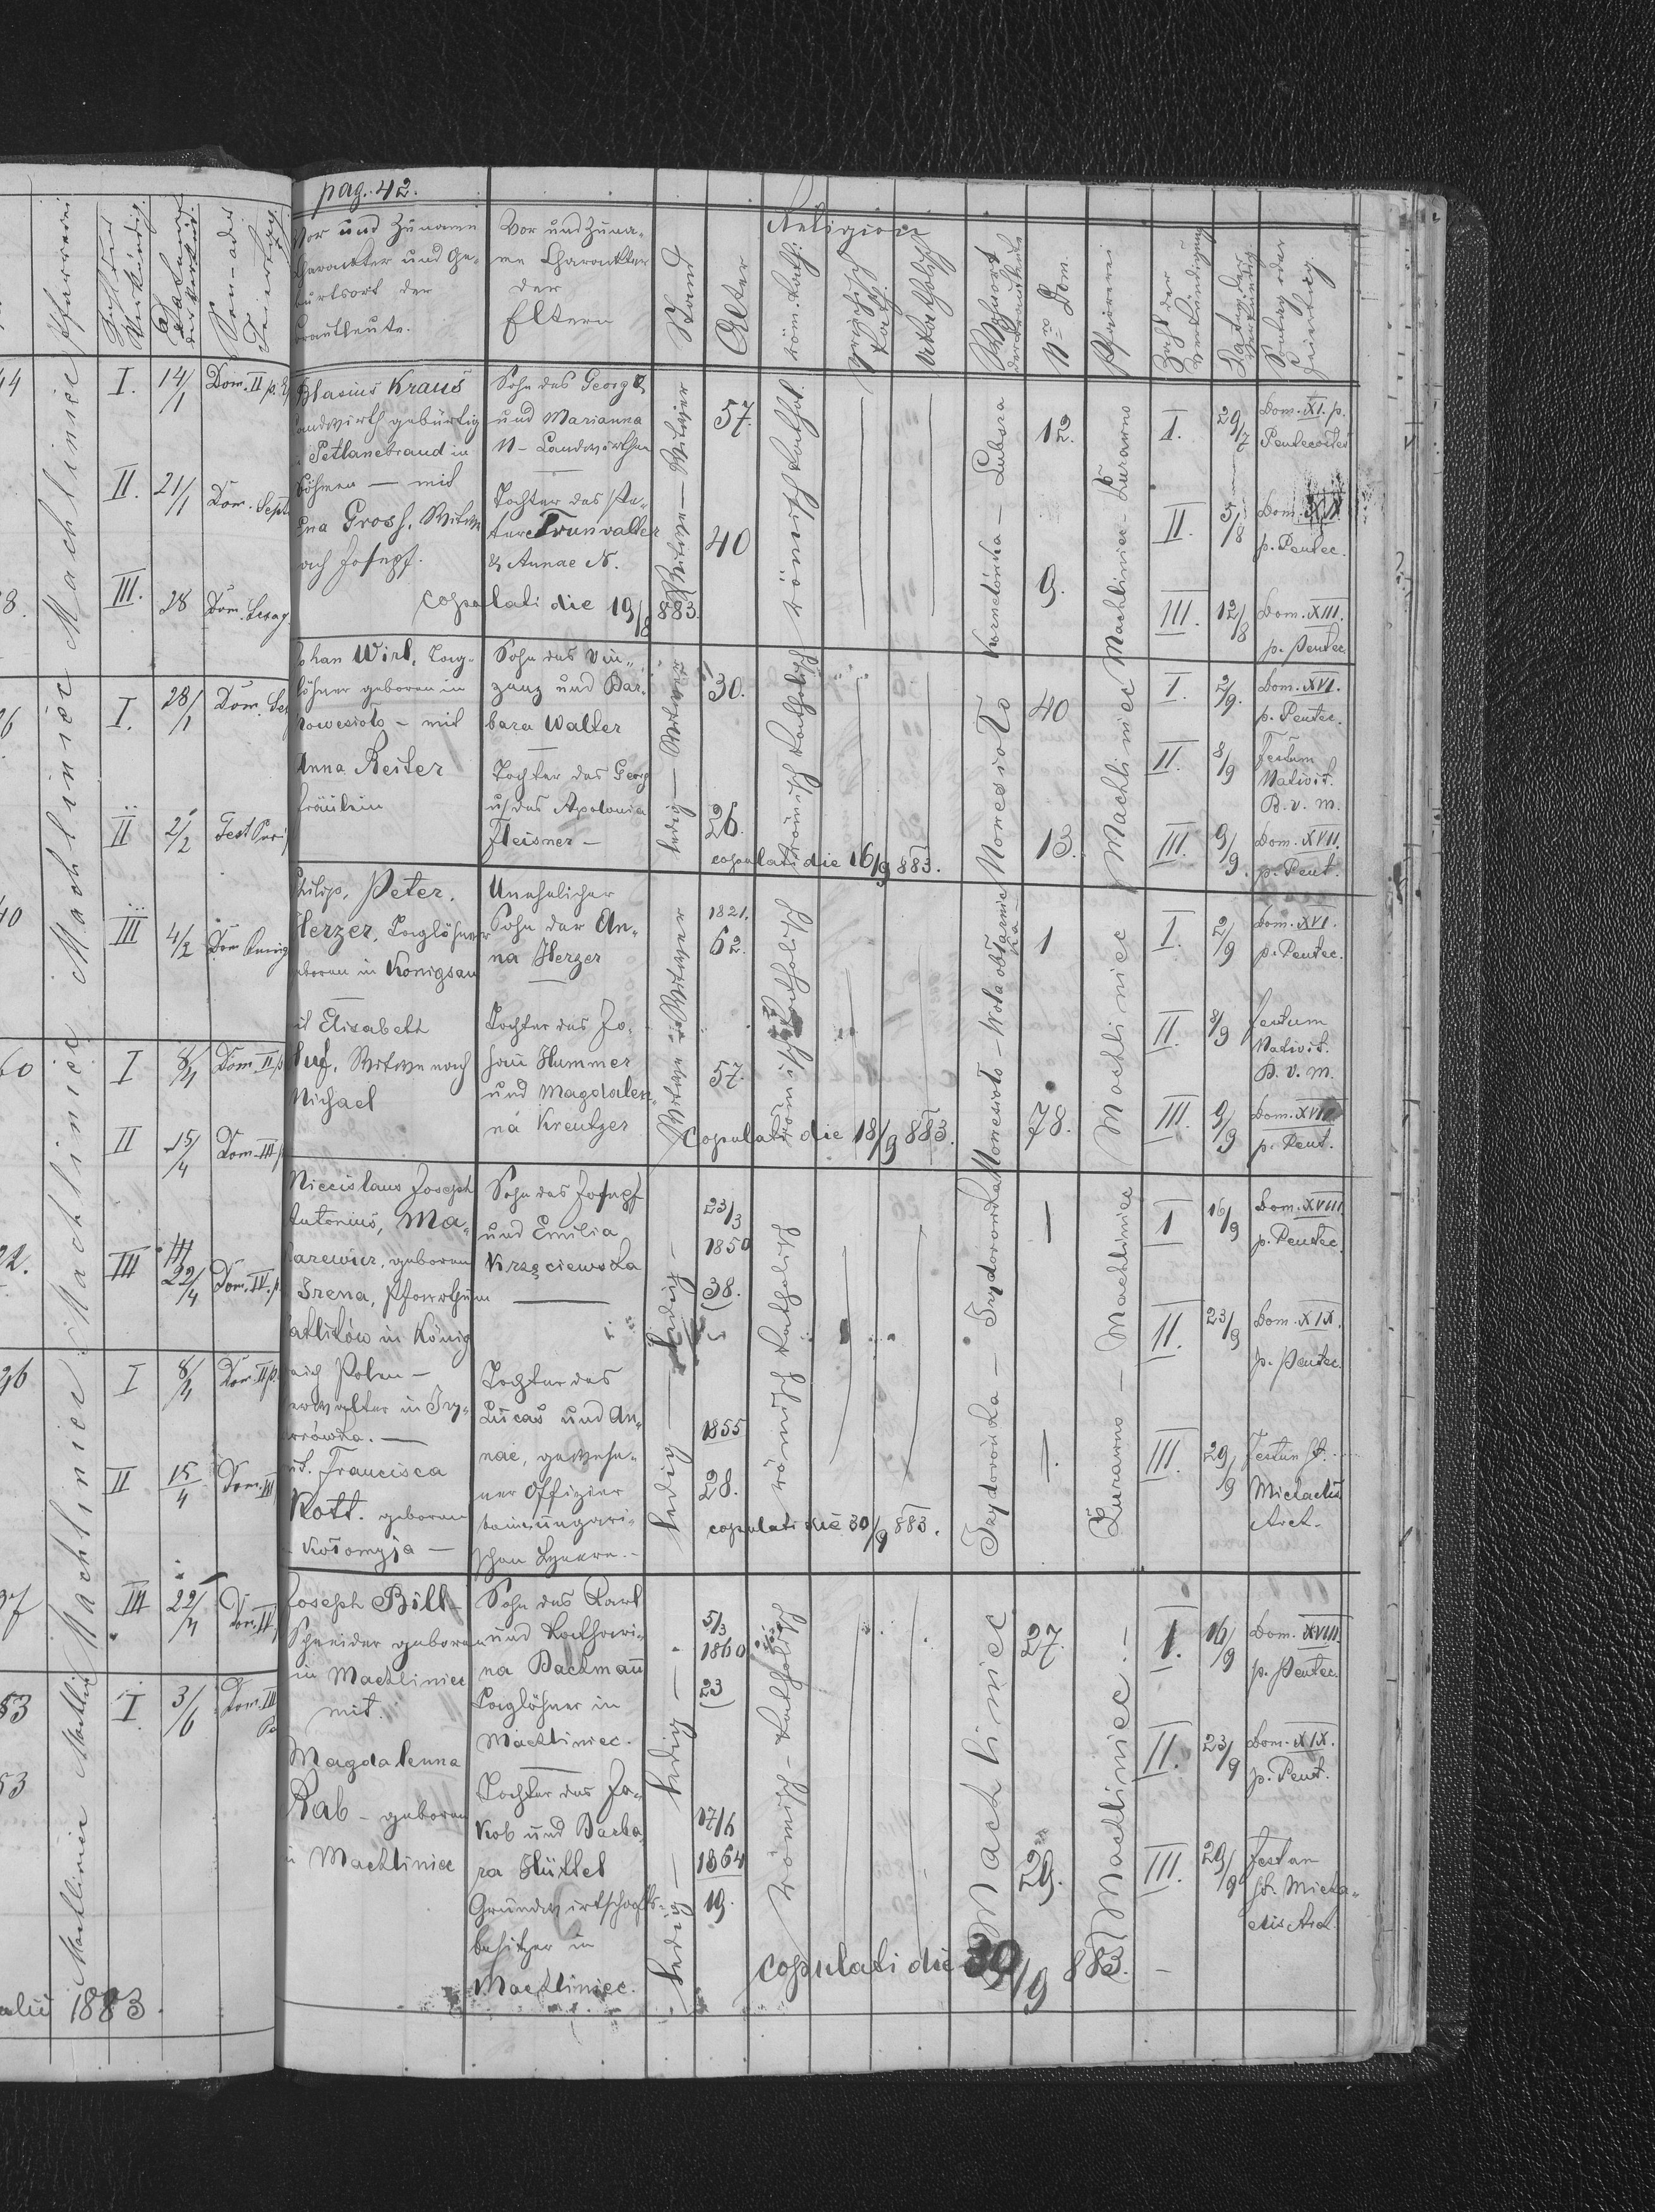 pag. 42.
Vor und Zuname
Charackter und Ge-
burtsort der
Brautleute.
Vor und Zuna-
me Charackter
der
Eltern
Stand
Alter
Religion
röm. kath.
griechisch
kath.
Akatholisch
Wohnort
der Brautleute
Nro Dom.
Pfarrei
Zahl der
Verkündigung
Datum der
Verkündig.
Sontag oder
Feiertag.
Blasius Kraus
Landwirth gebürtig
Petlanebrand in
Böhmen — mit
Gross, Witwe
nach Josepf.
Sohn des Georg
und Marianna
N - Landwirthen
Tochter des Pe-
ter Trunwalter
& Annae N.
Witwe — Witwer
57.
40
römisch kathol.
Lubsza
12.
9.
Machliniec - Żurawno
I. 29/7 Dom. XI. p.
Pentecostes
II 5/8 Dom. XII
p. Pentec.
III 12/8 Dom. XIII.
p. Pentec.
copulati die 19/8 883.
Johan Wirl, Tag-
löhner geboren in
Nowesioło - mit
Anna Reiter
Fräulein
Sohn des Vin-
zenz und Bar-
bara Walter
Tochter des Georg
u. des Apolonia
Fleisner -
ledig — Witwer
30.
26.
römisch katholisch
40
13.
Machliniec
I. 2/9. Dom. XVI.
p. Pentec.
II. 8/9 Festum
Nativit.
B. v. m.
III. 9/9. Dom. XVII.
p. Pent.
copulati die 16/9 883.
Philip, Peter.
Herzer, Taglöhner
geboren in Königsau
mit Elisabeth
Witwe nach
Michael
Unehelicher
Sohn der An-
na Herzer
Tochter des Jo-
han Hummer
und Magdalen-
na Kreutzer
Witwe — Witwer
1821.
62.
57.
römisch katholisch
1
78.
Machliniec
I. 2/9 Dom. XVI.
p. Pentec.
II. 8/9 festum
Nativit.
B. v. m.
III. 9/9 Dom. XVII
p. Pent.
Copulati die 18/9 883.
Miecislaus Joseph
Antonius, Ma-
karewicz, geboren
Srena, Pfarrthum
in König
reich Polen -
Verwalter in Izy-
dorówka. —
mit. Francisca
Kott. geboren
- Kołomyja -
Sohn des Josepf
und Emilia
Krzęciewska
Tochter des
Lucas und An-
nae, gewese-
ner Offizier
beim ungari-
schen
ledig — ledig
23/3
1850
38.
1855
28.
römisch katholisch
Izydorówka — Izydorówka
1
1.
Żurawno — Machliniec
I 16/9 Dom. XVIII
p. Pentec.
II. 23/9 Dom. XIX.
p. Pentec.
III. 29/9 Festum S.
Michaelis
Arch.
copulati die 30/9 883.
Joseph Bill -
Schneider geboren
in Machliniec
mit.
Magdalenna
Rab - geboren
in Machliniec
Sohn des Karl
und Kathari-
na Bachman
Taglöhner in
Machliniec.
Tochter des Ja-
kob und Barba-
ra Hüttel
Grundwirtschafts-
besitzer in
Machliniec.
ledig — ledig
5/3
1860
23
17/6
1864
19.
römisch - katholisch
Machliniec
27.
29.
Machliniec. -
I. 16/9 Dom. XVIII.
p. Pentec.
II. 23/9 Dom. XIX.
p. Pent.
III. 29/9 festum
St. Micha-
elis Arch.
copulati die 30/9 883. -
Machliniec
I. 14/1 Dom. II p.
II. 21/1 Dom. Sept.
III. 28 Dom.
I. 28/1 Dom.
II 2/2 Fest Puri
III 4/2 Dom.
I 8/4 Dom. II p
II 15/4 Dom. III p
III 22/4 Dom. IV. p.
I 8/4 Dom. II p.
II 15/4 Dom. III
III 22/4 Dom. IV
I 3/6 Dom. III
1883.